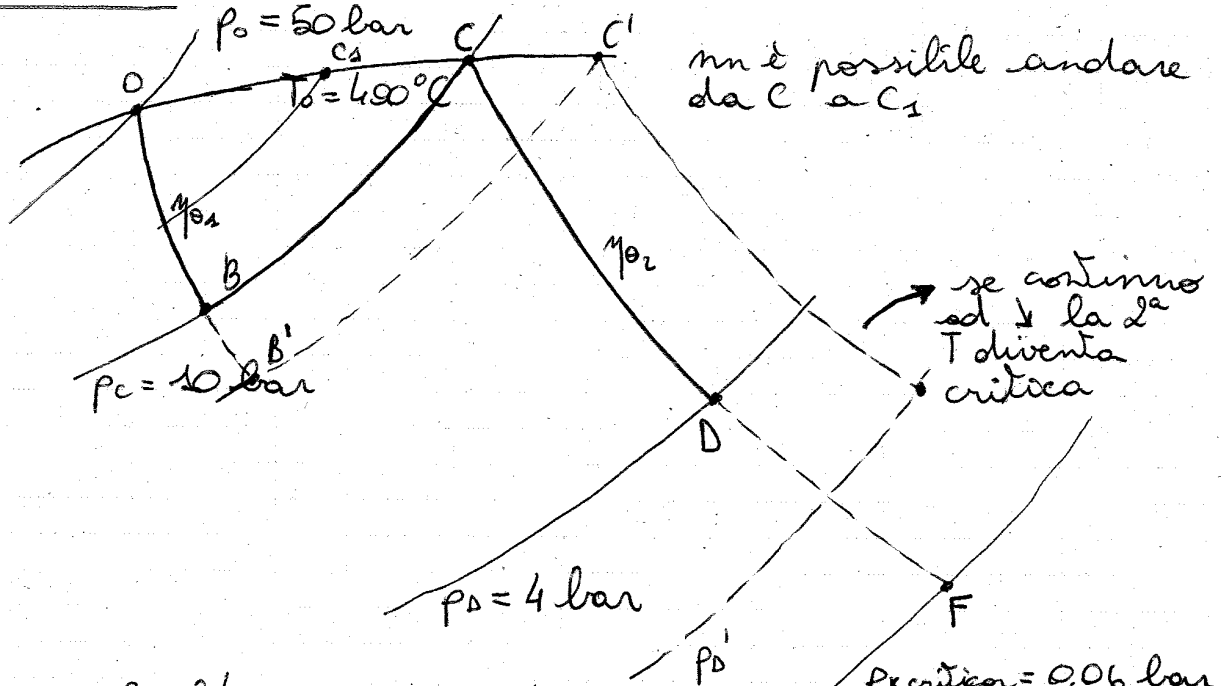 p₀ = 50 bar
O
C₁
C
C'
T₀ = 490°C
nn è possibile andare
da C a C₁
ηθ₁
B
ηθ₂
se continuo
ad ↓ la 2ª
T diventa
critica
B'
p_C = 10 bar
D
p_D = 4 bar
F
p_D'
p_K critica = 0,06 bar